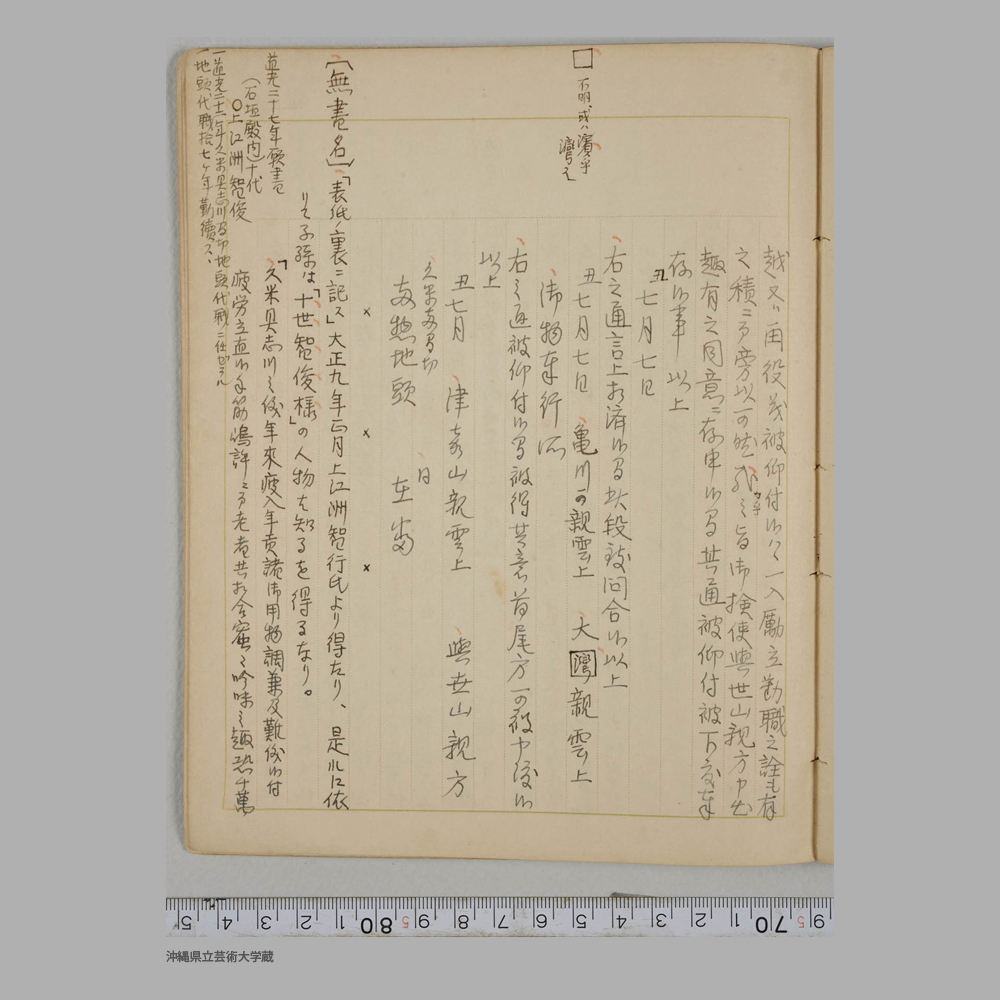 越又ハ両役義被仰付候ハヽ一入励立勤職之詮も有
之積ニ而旁以可然哉之旨御検使與世山親方申出
趣有之同意ニ存申候間其通被仰付被下度奉
存候事 以上
丑七月七日
右之通言上相済候間此段致問合候以上
丑七月七日 亀川親雲上 大灣親雲上
御物奉行所
右之通被仰付候間被得其意首尾方可被申渡候
以上
丑七月 津嘉山親雲上 與世山親方
久米両間切
両惣地頭 在番
□ 不明、或ハ濱乎 灣乎
× × ×
〔無書名〕「表紙ノ裏ニ記ス」大正九年正月上江洲智行氏より得たり、是ルニ依
りて子孫は「十世智俊様」の人物を知るを得るなり。
道光二十七年願書
(石垣殿内)十代
○上江洲智俊
一道光二十二年久米具志川間切地頭代職ニ仕ゼラル
一地頭代職拾七ヶ年勤續ス、
「久米具志川之儀年來疲入年貢諸御用物調兼及難儀候付
疲労立直候手筋嶋許ニ而老者共相合蜜々吟味之趣恐千萬
沖縄県立芸術大学蔵